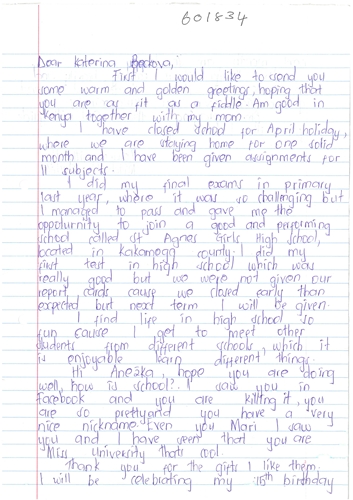 601834
Dear Katerina Beckova,
First, I would like to send you
some warm and golden greetings, hoping that
you are as fit as a fiddle. Am good in
Kenya together with my mom.
I have closed school for April holiday,
where we are staying home for one solid
month and I have been given assignments for
11 subjects.
I did my final exams in primary
last year, where it was so challenging but
I managed to pass and gave me the
opportunity to join a good and performing
school called St Agnes Girls High school,
located in Kakamega county. I did my
first test in high school which was
really good but we were not given our
report cards cause we closed early than
expected but next term I will be given.
I find life in high school so
fun cause I get to meet other
students from different schools, which it
is enjoyable learn different things.
Hi Anežka, hope you are doing
well, how is school?. I saw you in
Facebook and you are killing it, you
are so pretty and you have a very
nice nickname. Even you Mari I saw
you and I have seen that you are
Miss University thats cool
Thank you for the gifts I like them.
I will be celebrating my 15th birthday